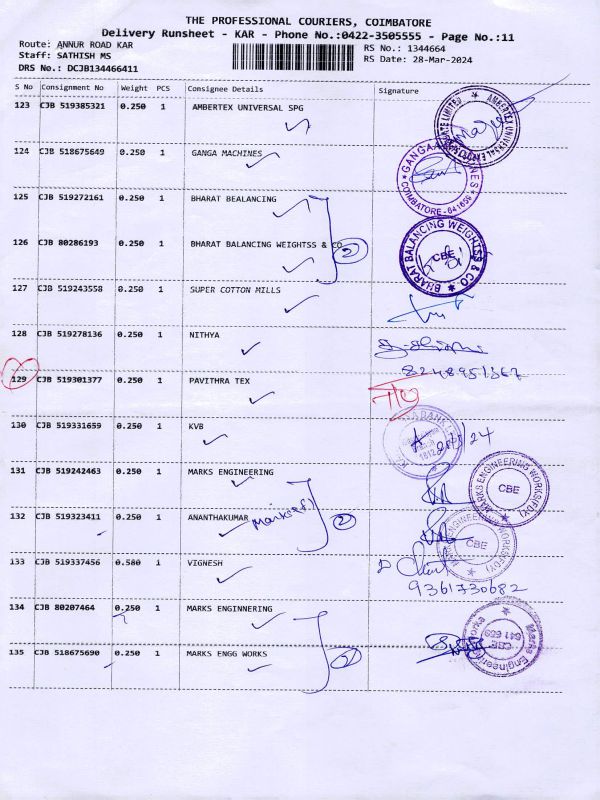 THE PROFESSIONAL COURIERS, COIMBATORE
Delivery Runsheet - KAR - Phone No.:0422-3505555 - Page No.:11
Route: ANNUR ROAD KAR
Staff: SATHISH MS
DRS No.: DCJB134466411
RS No.: 1344664
RS Date: 28-Mar-2024
S No Consignment No Weight PCS Consignee Details Signature
123 CJB 519385321 0.250 1 AMBERTEX UNIVERSAL SPG
AMBERTEX UNIVERSAL
124 CJB 518675649 0.250 1 GANGA MACHINES
COIMBATORE - 641659
125 CJB 519272161 0.250 1 BHARAT BEALANCING
126 CJB 80286193 0.250 1 BHARAT BALANCING WEIGHTSS & CO 2
BHARAT BALANCING WEIGHTSS & CO
CBE
127 CJB 519243558 0.250 1 SUPER COTTON MILLS
128 CJB 519278136 0.250 1 NITHYA
8248951367
129 CJB 519301377 0.250 1 PAVITHRA TEX
130 CJB 519331659 0.250 1 KVB
131 CJB 519242463 0.250 1 MARKS ENGINEERING
MARKS ENGINEERING WORKS(FDY)
CBE
132 CJB 519323411 0.250 1 ANANTHAKUMAR marks(f) 2
MARKS ENGINEERING WORKS(FDY)
CBE
133 CJB 519337456 0.580 1 VIGNESH
9361730682
134 CJB 80207464 0.250 1 MARKS ENGINNERING
135 CJB 518675690 0.250 1 MARKS ENGG WORKS 2
Marks Engineering Works
CBE
641 659